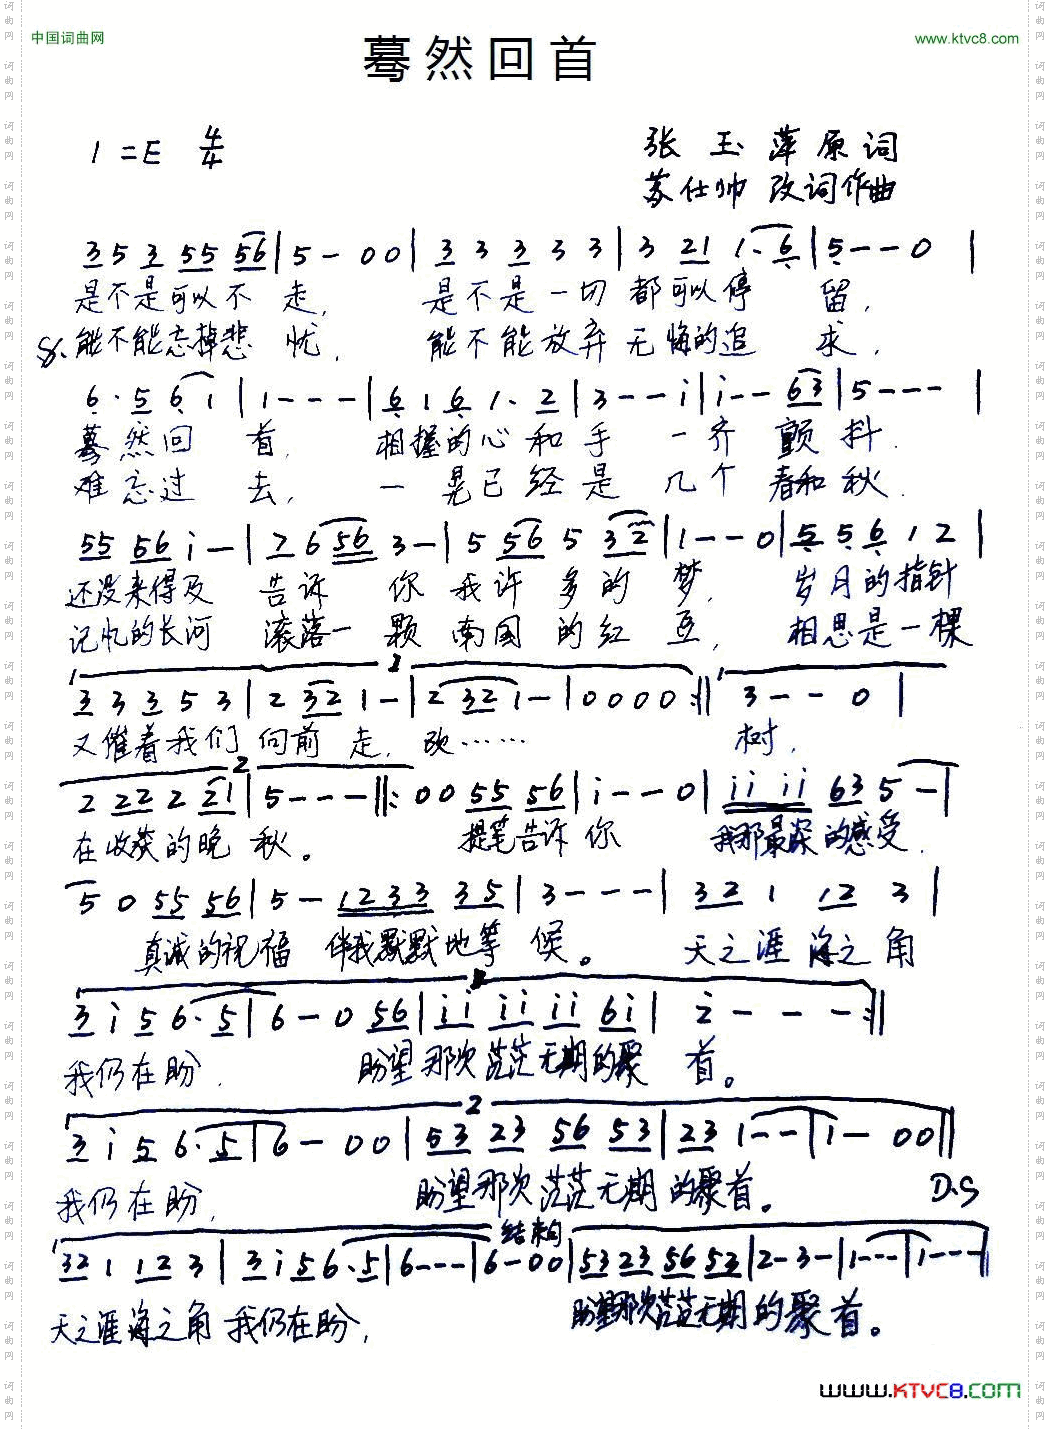 中国词曲网
www.ktvc8.com
蓦然回首
1=E 4/4
张玉萍原词
苏仕帅 改词作曲
3 5 3 55 56 | 5 - 0 0 | 3 3 3 3 3 | 3 21 1. 6 | 5 - - 0 |
是不是可以不走, 是不是一切都可以停留,
𝄋 能不能忘掉悲忧, 能不能放弃无悔的追求,
6. 5 6 1 | 1 - - - | 6 1 6 1. 2 | 3 - - i | i - - 63 | 5 - - - |
蓦然回首, 相握的心和手一齐颤抖.
难忘过去, 一晃已经是几个春和秋.
55 56 i - | 7 6 56 3 - | 5 56 5 32 | 1 - - 0 | 5 5 6 1 2 |
还没来得及告诉你我许多的梦, 岁月的指针
记忆的长河滚落一颗南国的红豆, 相思是一棵
1 2 1
3 3 3 5 3 | 2 32 1 - | 2 32 1 - | 0 0 0 0 :|| 3 - - 0 |
又催着我们向前走, 欧…… 树,
2
2 22 2 21 | 5 - - - ||: 0 0 55 56 | i - - 0 | ii ii 63 5 - |
在收获的晚秋。 提笔告诉你 我那最深的感受,
5 0 55 56 | 5 - 1233 35 | 3 - - - | 32 1 12 3 |
真诚的祝福 伴我默默地等候。 天之涯海之角
3 i 5 6. 5 | 6 - 0 56 | ii ii ii 6i | 2 - - - :||
我仍在盼, 盼望那次茫茫无期的聚首。
2
3 i 5 6. 5 | 6 - 0 0 | 53 23 56 53 | 23 1 - - | 1 - 0 0 ||
我仍在盼, 盼望那次茫茫无期的聚首。 D.S
1 结构
32 1 12 3 | 3 i 5 6. 5 | 6 - - - | 6 - 0 0 | 53 23 56 53 | 2 - 3 - | 1 - - - | 1 - - - ||
天之涯海之角我仍在盼, 盼望那次茫茫无期的聚首。
www.KTVC8.com